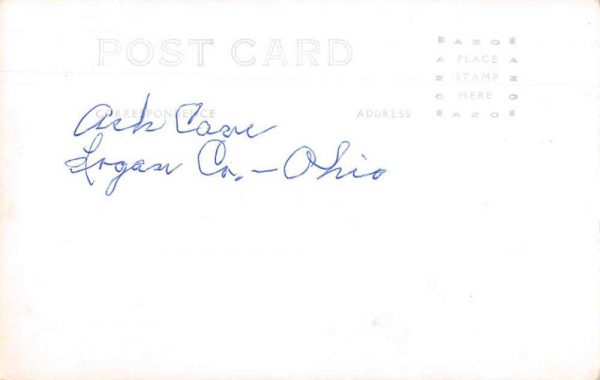 POST CARD
AZO
PLACE
STAMP
HERE
AZO
CORRESPONDENCE
ADDRESS
Ash Cave
Logan Co. – Ohio